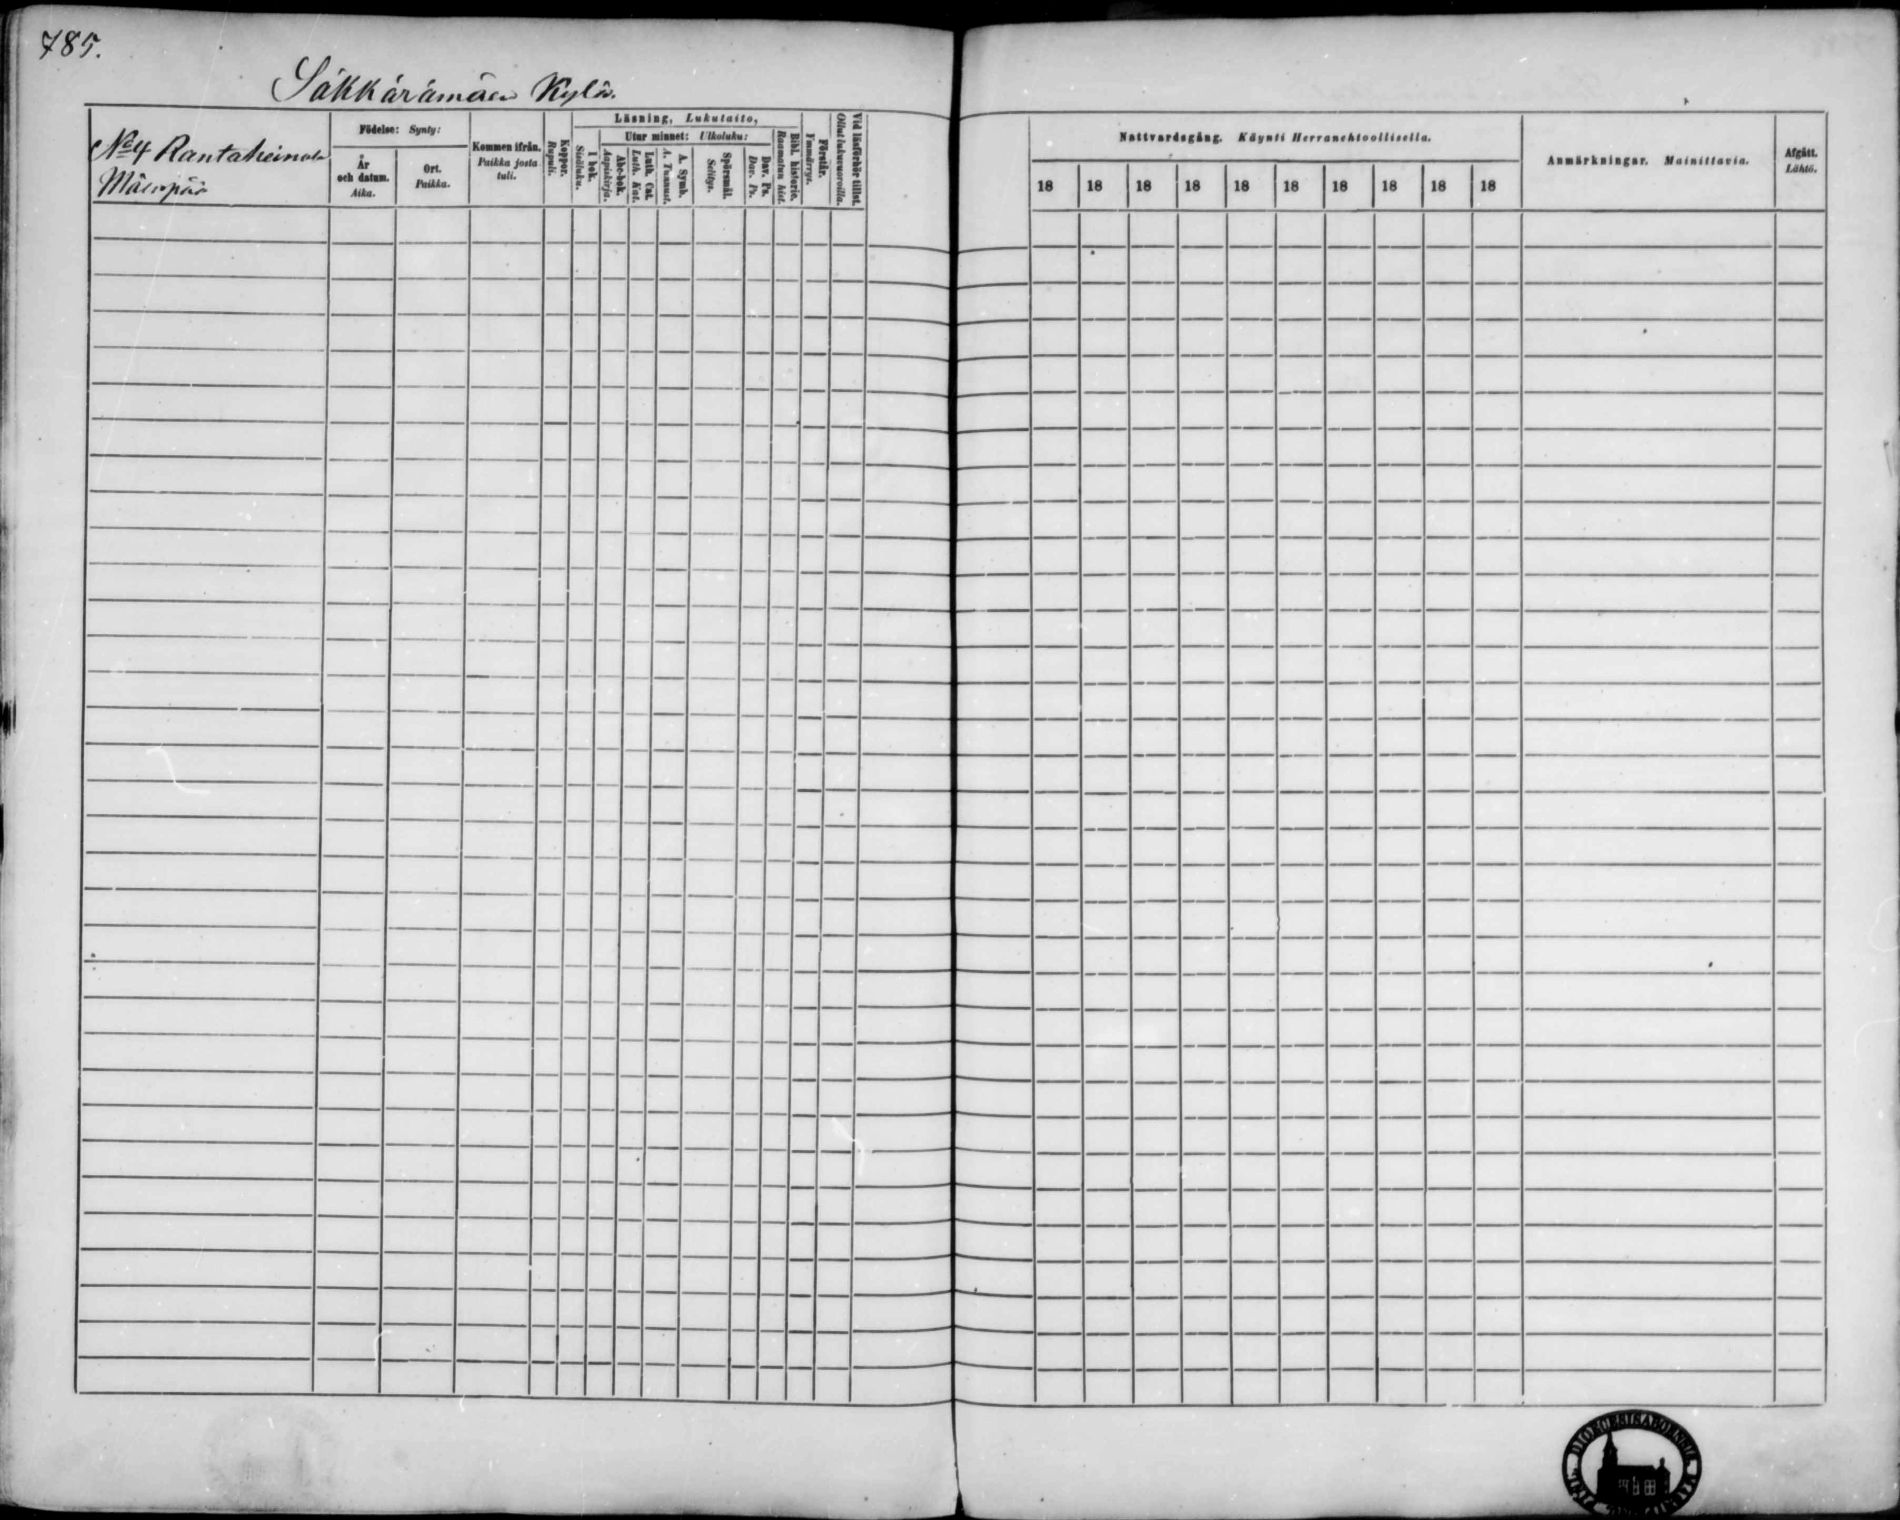 785.
Säkkärämäen Kylä.
No 4 Rantaheinola
Mäenpää
Födelse: Synty:
År
och datum.
Aika.
Ort.
Paikka.
Kommen ifrån.
Paikka josta
tuli.
Koppor.
Rupuli.
Läsning, Lukutaito,
I bok.
Sisäluku.
Utur minnet: Ulkoluku:
Abc-bok.
Aapiskirja.
Luth. Cat.
Luth. Kat.
A. Symb.
A. Tunnust.
Spörsmål.
Selitys.
Dav. Ps.
Dav. Ps.
Bibl. historie.
Raamatun hist.
Förstår.
Ymmärrys.
Vid läsförhör tillst.
Ollut lukuvuoroilla.
Nattvardsgång. Käynti Herranehtoollisella.
18 18 18 18 18 18 18 18 18 18
Anmärkningar. Mainittavia.
Afgått.
Lähtö.